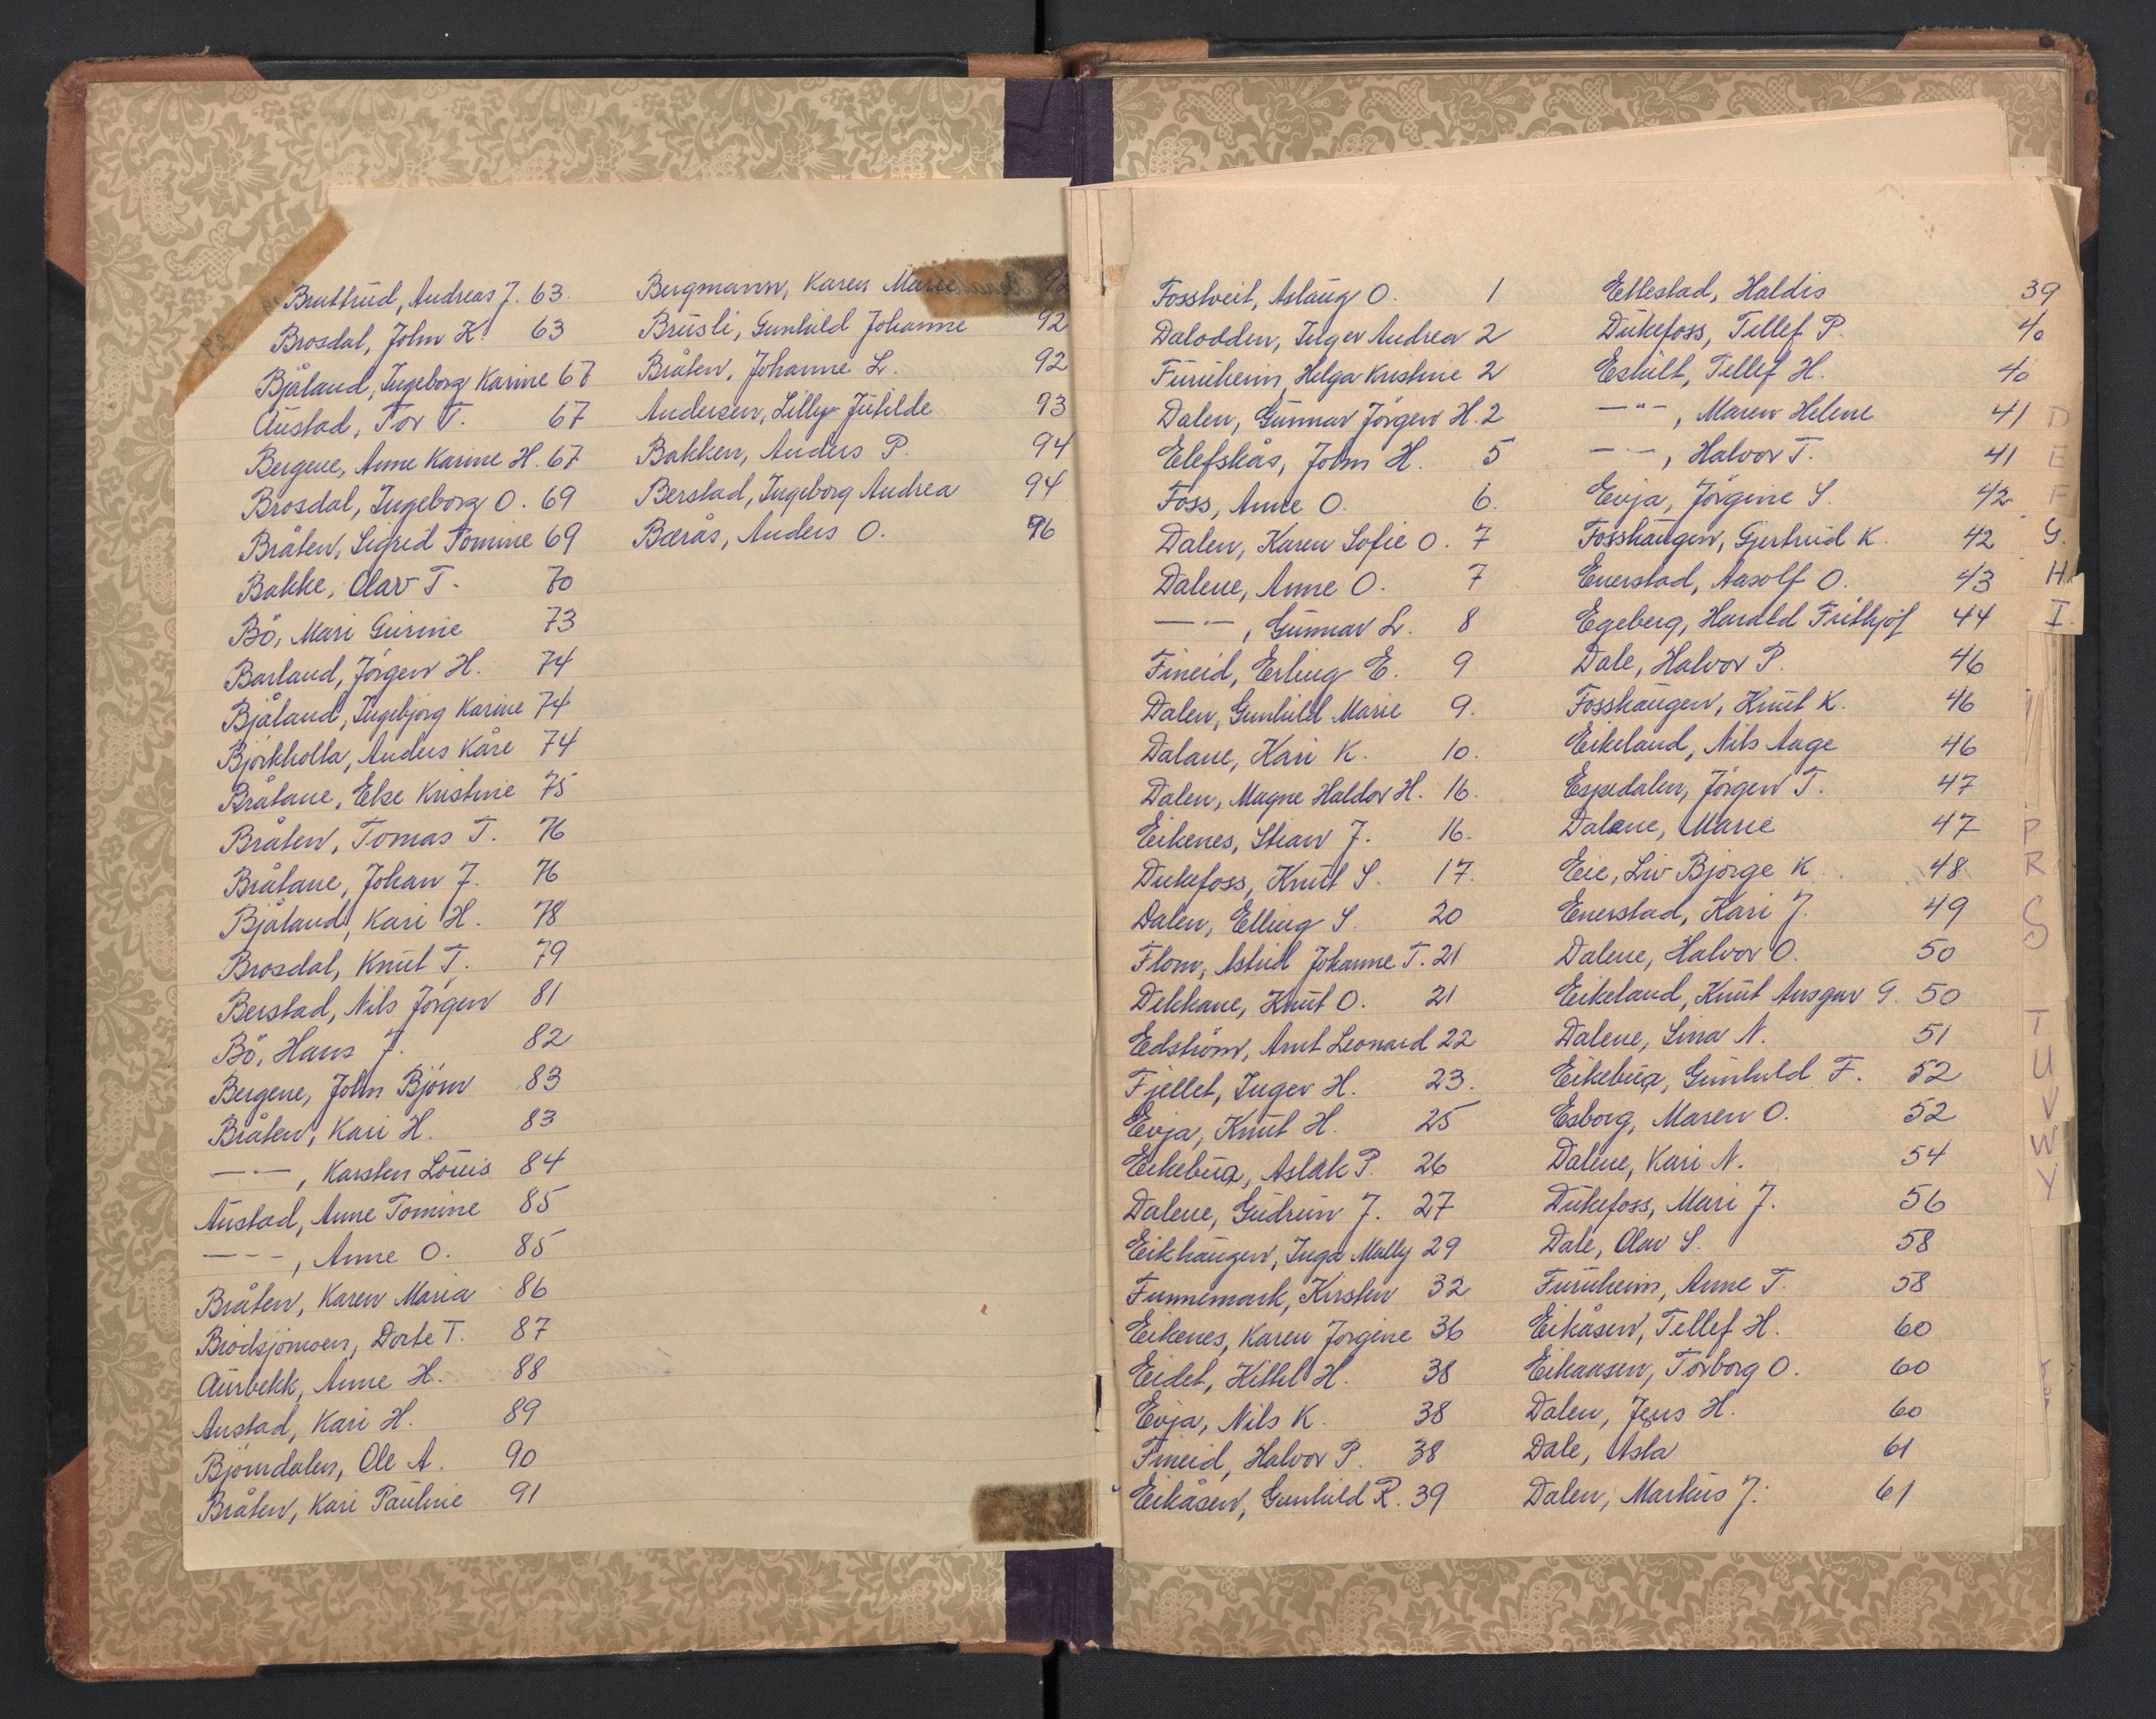 Brattrud, Andreas J. 63.
Brosdal, John K. 63
Bjåland, Ingeborg Karine 67
Austad, Tor T. 67
Bergene, Anne Karine H. 67
Brosdal, Ingeborg O. 69
Bråten, Sigrid Tomine 69
Bakke, Olav T. 70
Bö, Mari Gurine 73
Barland, Jörgen H. 74
Bjåland, Ingebjörg Karine 74
Björkholla, Anders Kåre 74
Bråtane, Else Kristine 75
Bråten, Tomas T. 76
Bråtane, Johan J. 76
Bjåland, Kari H. 78
Brosdal, Knut T. 79
Berstad, Nils Jörgen 81
Bö, Hans J. 82
Bergene, John Björn 83
Bråten, Kari H. 83
— " —, Karsten Louis 84
Austad, Anne Tomine 85
— - —, Anne O. 85
Bråten, Karen Maria 86
Brödsjömoen, Dorte T. 87
Aurbekk, Anne H. 88
Austad, Kari H. 89
Björndalen, Ole A. 90
Bråten, Kari Pauline 91
Bergmann, Karen Marie 92
Brusli, Gunhild Johanne 92
Bråten, Johanne L. 92
Andersen, Lilly Jutilde 93
Bakken, Anders P. 94
Berstad, Ingeborg Andrea 94
Bærås, Anders O. 96
Fosstveit, Aslaug O. 1
Dalodden, Inger Andrea 2
Furuheim, Helga Kristine 2
Dalen, Gunnar Jörgen H. 2
Elefskås, John H. 5
Foss, Anne O. 6.
Dalen, Karen Sofie O. 7
Dalene, Anne O. 7
— " —, Gunnar L. 8
Fineid, Erling E. 9
Dalen, Gunhild Marie 9.
Dalane, Kari K. 10.
Dalen, Magne Haldor H. 16.
Eikenes, Stian J. 16.
Dukefoss, Knut S. 17.
Dalen, Elling S. 20
Flom, Astrid Johanne T. 21
Dekkane, Knut O. 21
Edström, Arnt Leonard 22
Fjellet, Inger H. 23.
Evja, Knut H. 25
Eikebua, Aslak P. 26
Dalene, Gudrun J. 27
Eikhaugen, Inga Mally 29
Funnemark, Kirsten 32
Eikenes, Karen Jorgine 36
Eidet, Kittel H. 38
Evja, Nils K. 38
Fineid, Halvor P. 38
Eikåsen, Gunhild R. 39
Ettestad, Haldis 39
Dukefoss, Tellef P. 40
Eskilt, Tellef H. 40
— " —, Maren Helene 41
— " —, Halvor T. 41
Evja, Jörgine S. 42
Fosshaugen, Gjertrud K. 42
Enerstad, Aasolf O. 43
Egeberg, Harald Frithjof 44
Dale, Halvor P. 46
Fosshaugen, Knut K. 46
Eikeland, Nils Aage 46
Espedalen, Jörgen T. 47
Dalane, Marie 47
Eie, Liv Bjørge K. 48.
Enerstad, Kari J. 49
Dalene, Halvor O. 50
Eikeland, Knut Ansgar G. 50
Dalene, Sina N. 51
Eikebua, Gunhild F. 52
Esborg, Maren O. 52
Dalene, Kari N. 54
Dukefoss, Mari J. 56
Dale, Olav S. 58
Furuheim, Anne T. 58
Eikåsen, Tellef H. 60
Eikaasen, Torborg O. 60
Dalen, Jens H. 60
Dale, Asta 61
Dalen, Markus J. 61
D
E
F
G.
H.
I.
P
R
S
T
U
V
W
Y